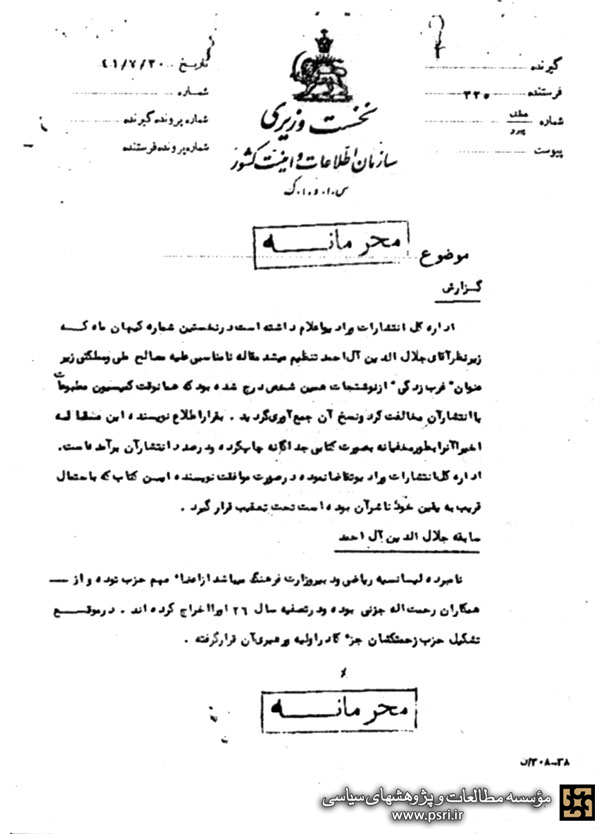 گیرنده
فرستنده ۳۳۵
شماره عطف پیرو
پیوست
تاریخ ۴۱/۷/۳۰
شماره
شماره پرونده گیرنده
شماره پرونده فرستنده
نخست وزیری
سازمان اطلاعات و امنیت کشور
س.ا.و.ا.ک
محرمانه
موضوع
گزارش
اداره کل انتشارات و رادیو اعلام داشته است در نخستین شماره کیهان ماه که
زیر نظر آقای جلال الدین آل احمد تنظیم میشد مقاله نامناسبی علیه مصالح ملی و مملکتی زیر
عنوان "غرب زدگی" از نوشتجات همین شخص درج شده بود که همانوقت کمیسیون مطبوعات
با انتشار آن مخالفت کرد و نسخ آن جمع آوری گردید . بقرار اطلاع نویسنده این مقاله
اخیرا آنرا بطور مخفیانه بصورت کتابی جداگانه چاپ کرده و درصدد انتشار آن برآمده است.
اداره کل انتشارات و رادیو تقاضا نموده در صورت موافقت نویسنده این کتاب که با حتمال
قریب به یقین خود ناشر آن بوده است تحت تعقیب قرار گیرد .
سابقه جلال الدین آل احمد
نامبرده لیسانسیه ریاضی و دبیر وزارت فرهنگ میباشد از اعضاء مهم حزب توده و از
همکاران رحمت اله جزنی بوده و در تصفیه سال ۲۶ او را اخراج کرده اند . در موقع
تشکیل حزب زحمتکشان جزء کادر اولیه و رهبری آن قرار گرفته .
محرمانه
۳۸-۳۰۸/ن
مؤسسه مطالعات و پژوهشهای سیاسی
www.psri.ir